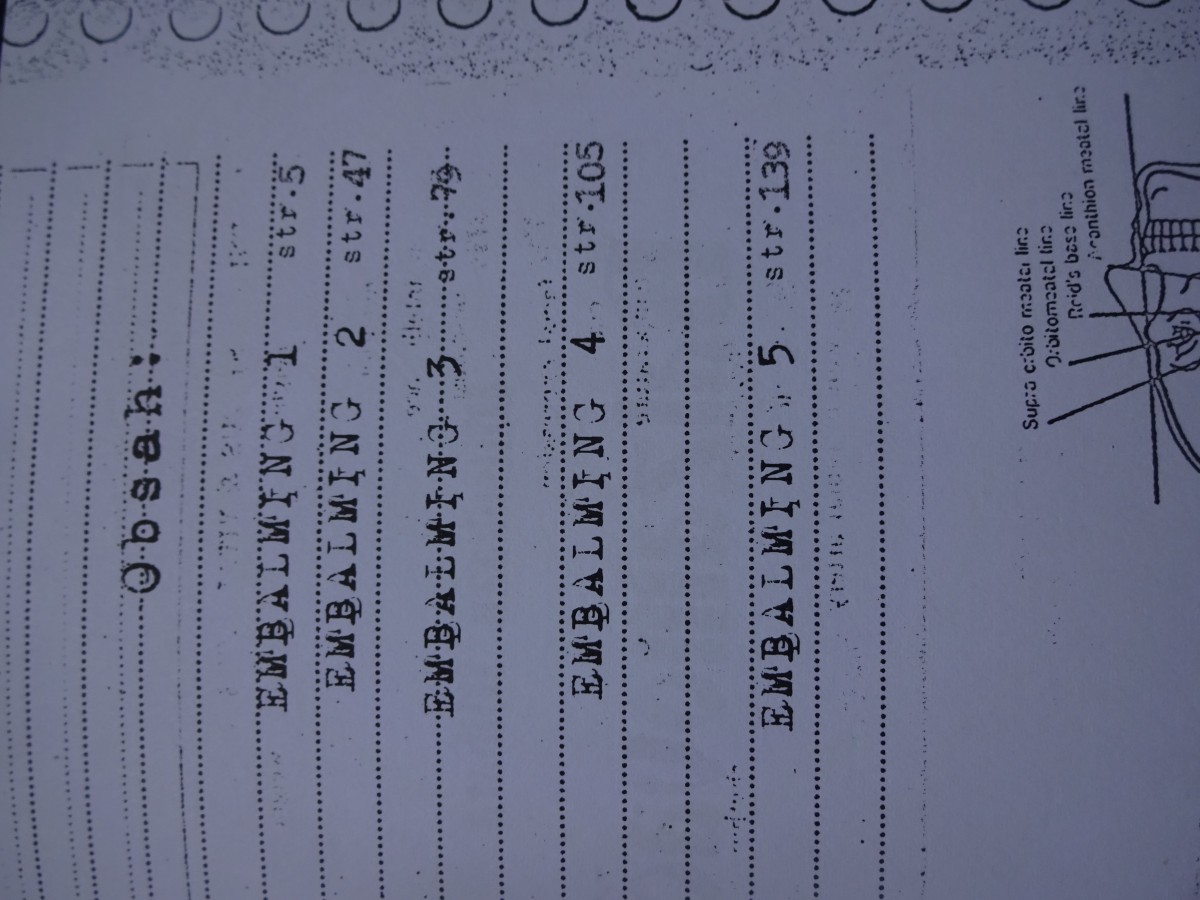 Obsah:
EMBALMING 1 str.5
EMBALMING 2 str.47
EMBALMING 3 str.79
EMBALMING 4 str.105
EMBALMING 5 str.139
Supra orbito meatal line
Orbitomeatal line
Reid's base line
Acanthion meatal line